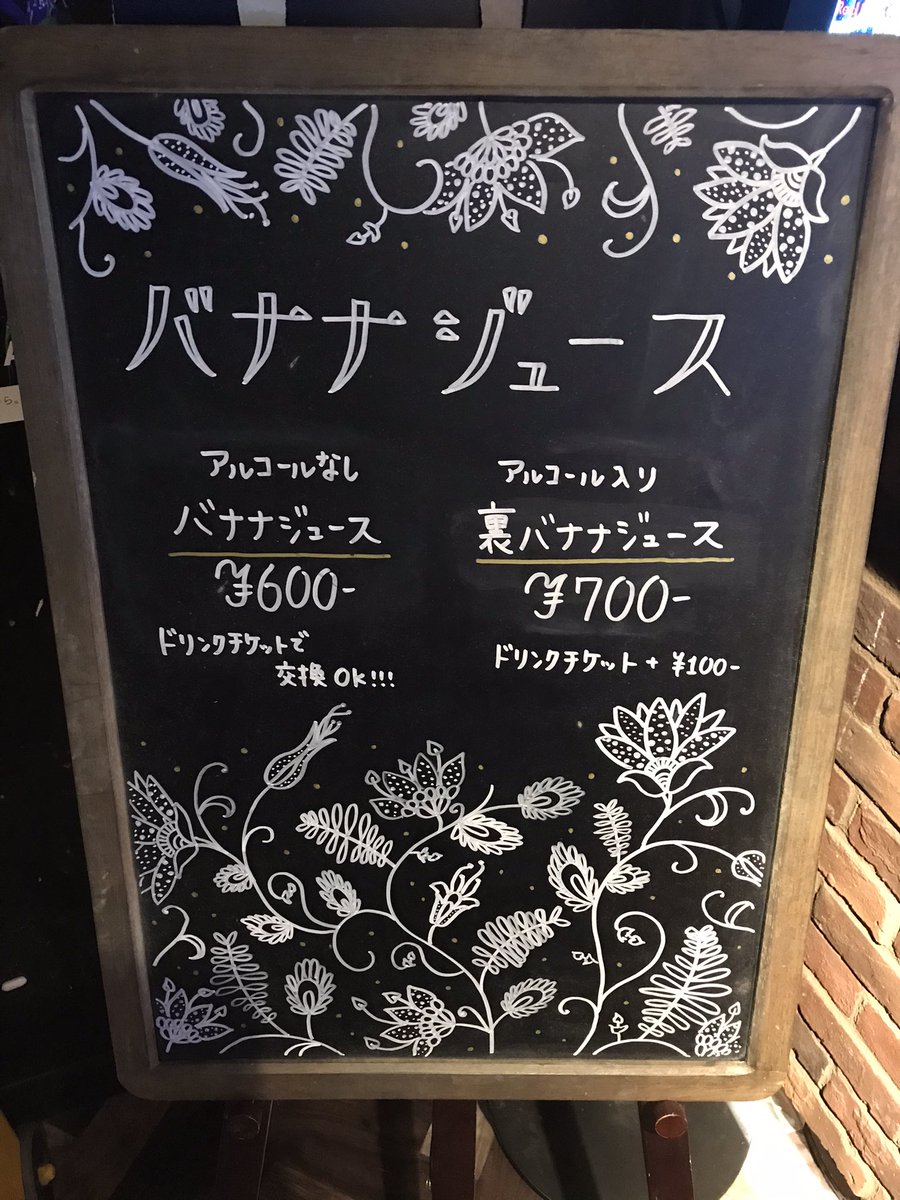 バナナジュース
アルコールなし
バナナジュース
¥600-
ドリンクチケットで
交換OK!!!
アルコール入り
裏バナナジュース
¥700-
ドリンクチケット + ¥100-